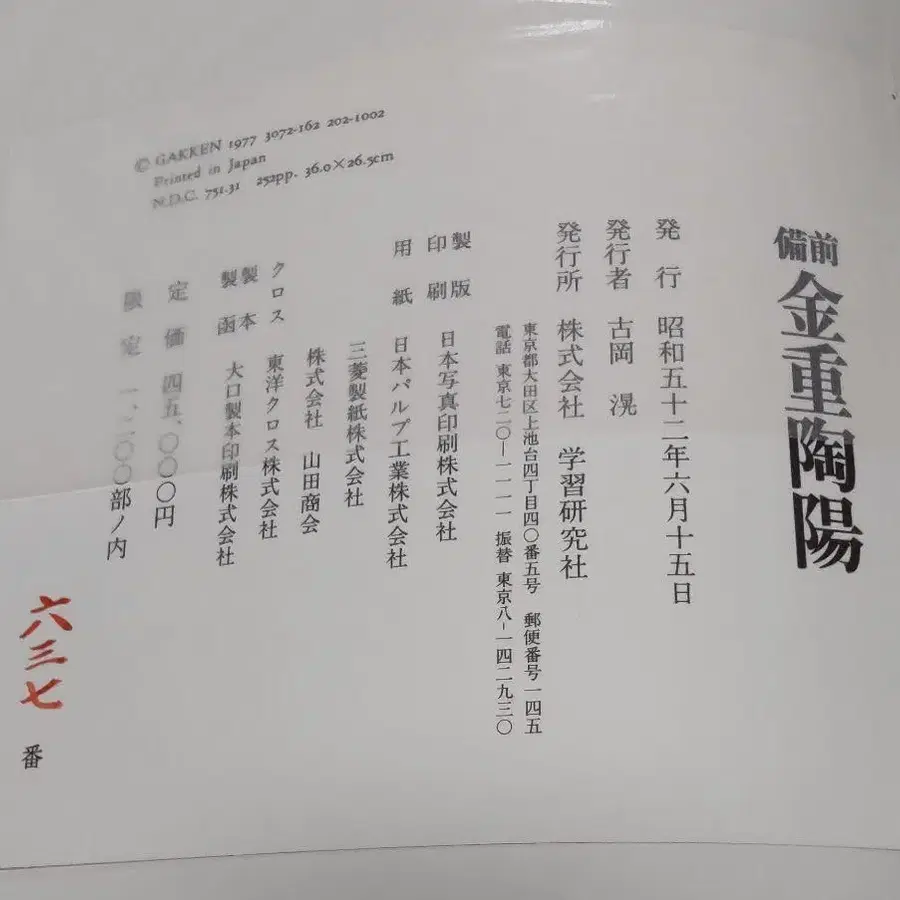 備前 金重陶陽
発行 昭和五十二年六月十五日
発行者 古岡 滉
発行所 株式会社 学習研究社
東京都大田区上池台四丁目四〇番五号 郵便番号一四五
電話 東京七二〇―一一一一 振替 東京八-一四二九三〇
製版
印刷 日本写真印刷株式会社
用紙 日本パルプ工業株式会社
三菱製紙株式会社
株式会社 山田商会
クロス 東洋クロス株式会社
製本
製函 大口製本印刷株式会社
定価 四五、〇〇〇円
限定 一、二〇〇部ノ内
六三七 番
© GAKKEN 1977 3072-162 202-1002
Printed in Japan
N.D.C. 751.31 252pp. 36.0×26.5cm